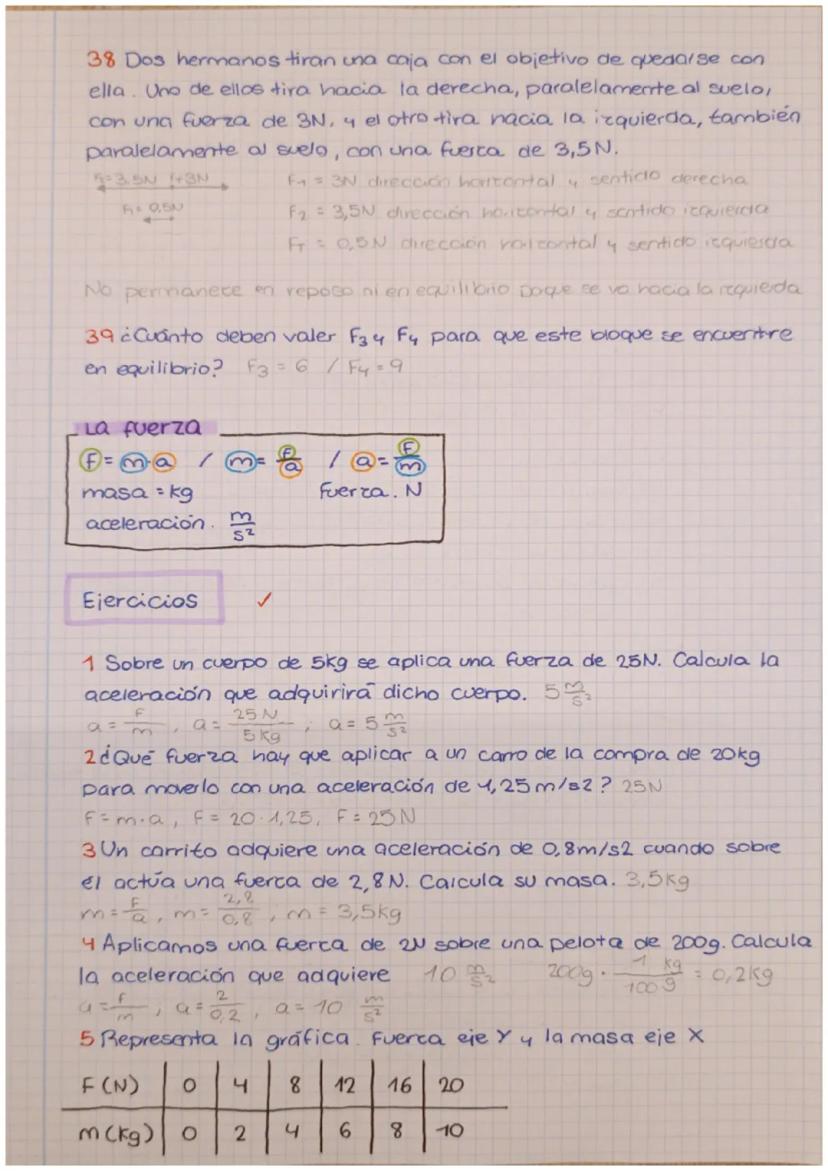 38 Dos hermanos tiran una caja con el objetivo de quedarse con
ella. Uno de ellos tira hacia la derecha, paralelamente al suelo,
con una fuerza de 3N, y el otro tira hacia la izquierda, también
paralelamente al suelo, con una fuerza de 3,5N.
F1 = 3N dirección horizontal y sentido derecha
F2 = 3,5N dirección horizontal y sentido izquierda
FT = 0,5N dirección horizontal y sentido izquierda
No permanece en reposo ni en equilibrio se va hacia la izquierda
39 ¿Cuánto deben valer F3 y F4 para que este bloque se encuentre
en equilibrio? F3 = 6 / F4 = 9
La fuerza
F = m·a / m = F/a / a = F/m
masa = kg fuerza. N
aceleración. m/s²
Ejercicios ✓
1 Sobre un cuerpo de 5kg se aplica una fuerza de 25N. Calcula la
aceleración que adquirirá dicho cuerpo. 5 m/s²
a = F/m, a = 25 N/5 kg, a = 5 m/s²
2 ¿Qué fuerza hay que aplicar a un carro de la compra de 20kg
para moverlo con una aceleración de 1,25 m/s2? 25N
F = m·a, F = 20·1,25, F = 25N
3 Un carrito adquiere una aceleración de 0,8m/s2 cuando sobre
él actúa una fuerza de 2,8N. Calcula su masa. 3,5kg
m = F/a, m = 2,8/0,8, m = 3,5kg
4 Aplicamos una fuerza de 2N sobre una pelota de 200g. Calcula
la aceleración que adquiere 10 m/s² 200g · 1 kg/100 g = 0,2kg
a = F/m, a = 2/0,2, a = 10 m/s²
5 Representa la gráfica. Fuerza eje Y y la masa eje X
F (N) 0 4 8 12 16 20
m (kg) 0 2 4 6 8 10